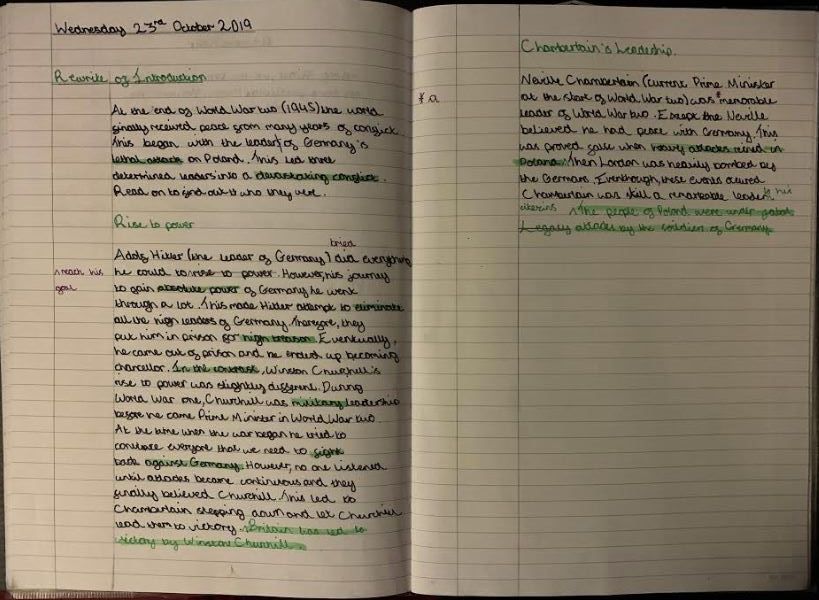 Wednesday 23rd October 2019
Rewrite of Introduction
At the end of World War two (1945) the world
finally received peace from many years of conflict.
This began with the leader of Germany's
lethal attack on Poland. This led three
determined leaders into a devastating conflict.
Read on to find out who they were.
Rise to power
Adolf Hitler (the leader of Germany) tried did everything
he could to rise to power. However, his journey
^reach his
goal
to gain absolute power of Germany he went
through a lot. This made Hitler attempt to eliminate
all the high leaders of Germany. Therefore, they
put him in prison for high treason. Eventually,
he came out of prison and he ended up becoming
chancellor. In the contrast, Winston Churchill's
rise to power was slightly different. During
World War one, Churchill was military leadership
before he came Prime Minister in World War two.
At the time when the war began he tried to
convince everyone that we need to fight
back against Germany. However, no one listened
until attacks became continuous and they
finally believed Churchill. This led to
Chamberlain stepping down and let Churchill
lead them to victory. Britain was led to
victory by Winston Churchill.
Chamberlain's Leadership.
Neville Chamberlain (current Prime Minister
*a
at the start of World War two) was * memorable
leader of World War two. Except the Neville
believed he had peace with Germany. This
was proved false when heavy attacks rained in
Poland. Then London was heavily bombed by
the Germans. Eventhough, these events occured
Chamberlain was still a remarkable leader to his
citizens. ^The people of Poland were under
attacks by the soldiers of Germany.